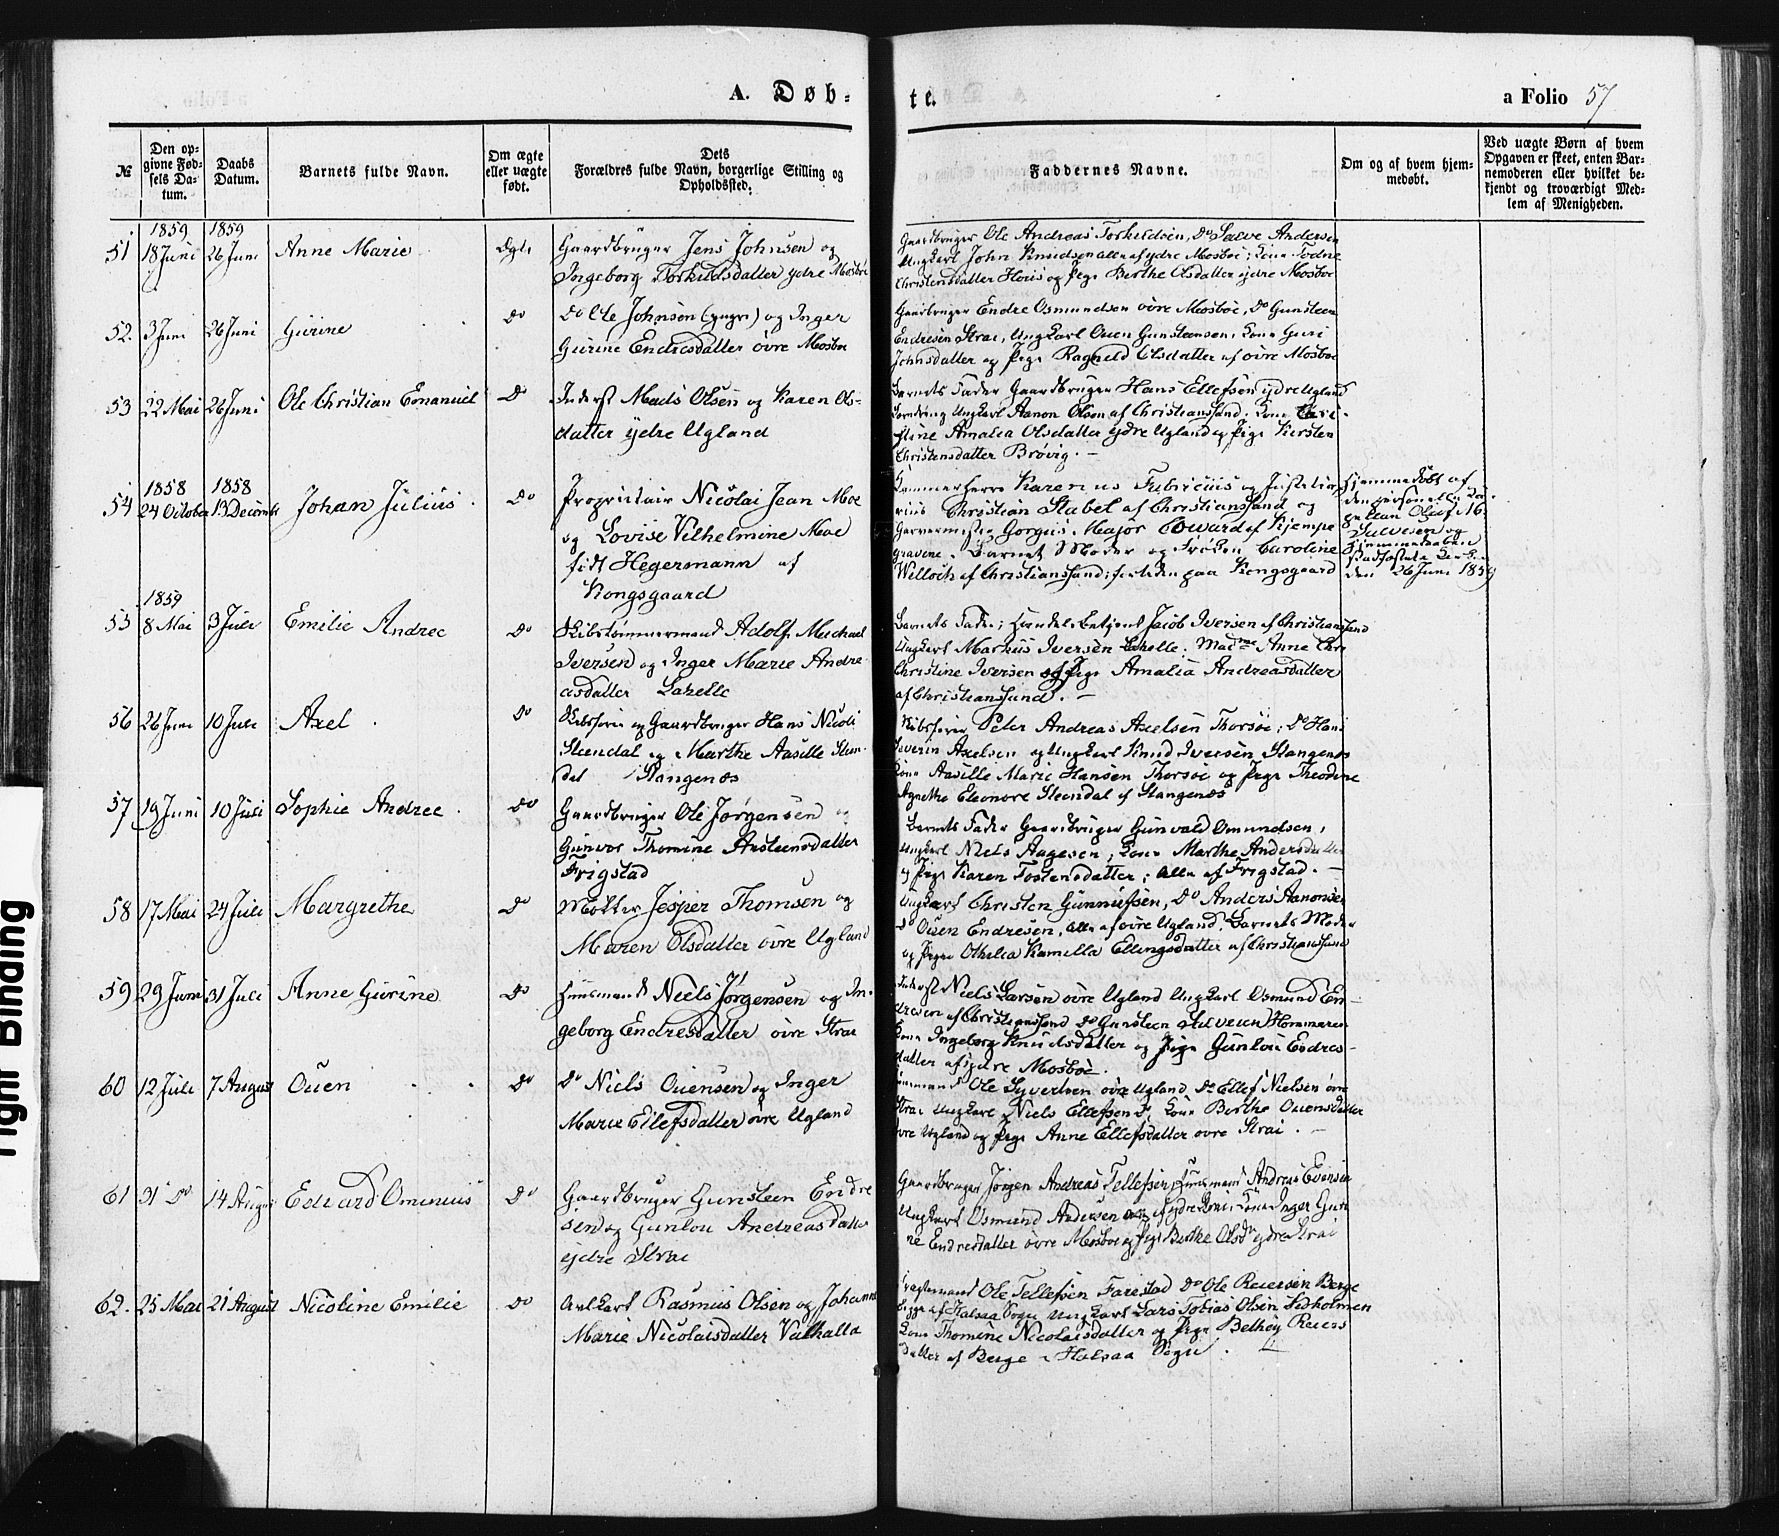 A. Døb=
te.
a Folio 57
№
Den opgivne Fødsels Datum.
Daabs Datum.
Barnets fulde Navn.
Om ægte eller uægte født.
Dets Forældres fulde Navn, borgerlige Stilling og Opholdssted:
Faddernes Navne.
Om og af hvem hjemmedøbt.
Ved uægte Børn af hvem Opgaven er skeet, enten Barnemoderen eller hvilket bekjendt og troværdigt Medlem af Menigheden.
1859 1859
51 18 Juni 26 Juni Anne Marie Ægte Gaardbruger Jens Johnsen og
Ingeborg Torkildsdatter ydre Mosbøe
Gaardbruger Ole Andreas Torkildsen, Do Salve Andersen
Ungkarl John Knudsen alle af ydre Mosbøe; Kone Todne
Christensdatter Hous og Pige Berthe Olsdatter ydre Mosboe
52. 3 Juni 26 Juni Gurine Do Do Ole Johnsen (yngre) og Inger
Gurine Endresdatter øvre Mosboe
Gaardbruger Endre Osmundsen øvre Mosbøe, Do Gunsteen
Endresen Strai, Ungkarl Ouen Gunsteensen, Kone Guri
Johnsdatter og Pige Ragnild Olsdatter af øvre Mosboe
53 22 Mai 26 Juni Ole Christian Emanuel Do Inderst Mads Olsen og Karen Ols-
datter ydre Ugland
Barnets Fader Gaardbruger Hans Ellefsen ydre Ugland
Ungkarl Aanon Olsen af Christianssand. Kone
stine Amalia Olsdatter ydre Ugland og Pige Kirsten
Christensdatter Brøvig. —
1858 1858
54 24 October 13 December Johan Julius Do Proprietair Nicolai Jean Moe
og Lovise Vilhelmine Moe
født Hegermann af
Kongsgaard
Kammerherre Karenius Fabricius og
Christian Stabel af Christianssand og
Major af Kjempe
gravene. Barnets Moder og Frøken Caroline
Willoch af Christianssand; paa Kongsgaard
Hjemmedøbt af
den
Olaf
Salvesen og
Hjemmedaaben
stadfæstet
den 26 Juni 1859
1859
55 8 Mai 3 Juli Emilie Andree Do Skibstømmermand Adolf Michael
Iversen og Inger Marie Andre
asdatter Lahelle
Barnets Fader; Handelsbetjent Jacob Iversen af Christianssand
Ungkarl Markus Iversen Lahelle. Madme Anne
Christine Iversen og Pige Amalia Andreasdatter
af Christianssand. —
56 26 Juni 10 Juli Axel Do Skibsfører og Gaardbruger Hans Nicoli
Steendal og Marthe Aasille Steen-
dal Stangenæs
Skibsfører Peter Andreas Axelsen Thorsøe; Do Hans
Severin Axelsen og Ungkarl Knud Iversen, Stangenæs
Kone Aasille Marie Hansen Thorsøe og Pige Theodine
Agnethe Eleonore Steendal af Stangenæs
57 19 Juni 10 Juli Sophie Andree Do Gaardbruger Ole Jørgensen og
Gunvor Thomine Austeensdatter
Frigstad
Barnets Fader Gaardbruger Gunvald Omundsen,
Ungkarl Niels Aagesen, Kone Marthe Andersdatter
og Pige Karen Tostensdatter; Alle af Frigstad. —
58 17 Mai 24 Juli Margrethe Do Møller Jesper Thomsen og
Maren Olsdatter øvre Ugland
Ungkarl Christen Gunnufsen, Do Anders Aanonsen
Do Ouen Endresen, Alle af øvre Ugland. Barnets Moder
og Pige Othilia Kamilla Ellingsdatter af Christianssand
59 29 Juni 31 Juli Anne Gurine Do Huusmand Niels Jørgensen og In-
geborg Endresdatter øvre Strai
Inderst Niels Larsen øvre Ugland Ungkarl Osmund En-
dresen af Christianssand Do Gunsteen
Kone Ingeborg Knudsdatter og Pige Gunlou Endres-
datter af ydre Mosbøe.
60 12 Juli 7 August Ouen Do Do Niels Ouensen og Inger
Marie Ellefsdatter øvre Ugland
Huusmand Ole Syvertsen øvre Ugland, Do Ellef Nielsen øvre
Strai Ungkarl Niels Ellefsen Do, Kone Berthe Ouensdatter
øvre Ugland og Pige Anne Ellefsdatter øvre Strai. —
61 31 Do 14 August Edvard Ominius Do Gaardbruger Gunsteen Endre
sen og Gunlou Andreasdatter
ydre Strai
Gaardbruger Jörgen Andreas Tellefsen, Huusmand Andreas Evensen
Ungkarl Osmund Andersen Kone Inger Guri
ne Endresdatter øvre Mosboe og Pige Berthe Olsdr ydre Strai
62. 25 Mai 21 August Nicoline Emilie Do Rasmus Olsen og Johanne
Marie Nicolaisdatter Valhalla
Ole Tellefsen Farestad Do Ole Reiersen Berge
Begge af Halsaa Sogn Ungkarl Lars Tobias Olsen
Kone Thomine Nicolaisdatter og Pige Reiers
datter af Berge i Halsaa Sogn.
Tight Binding